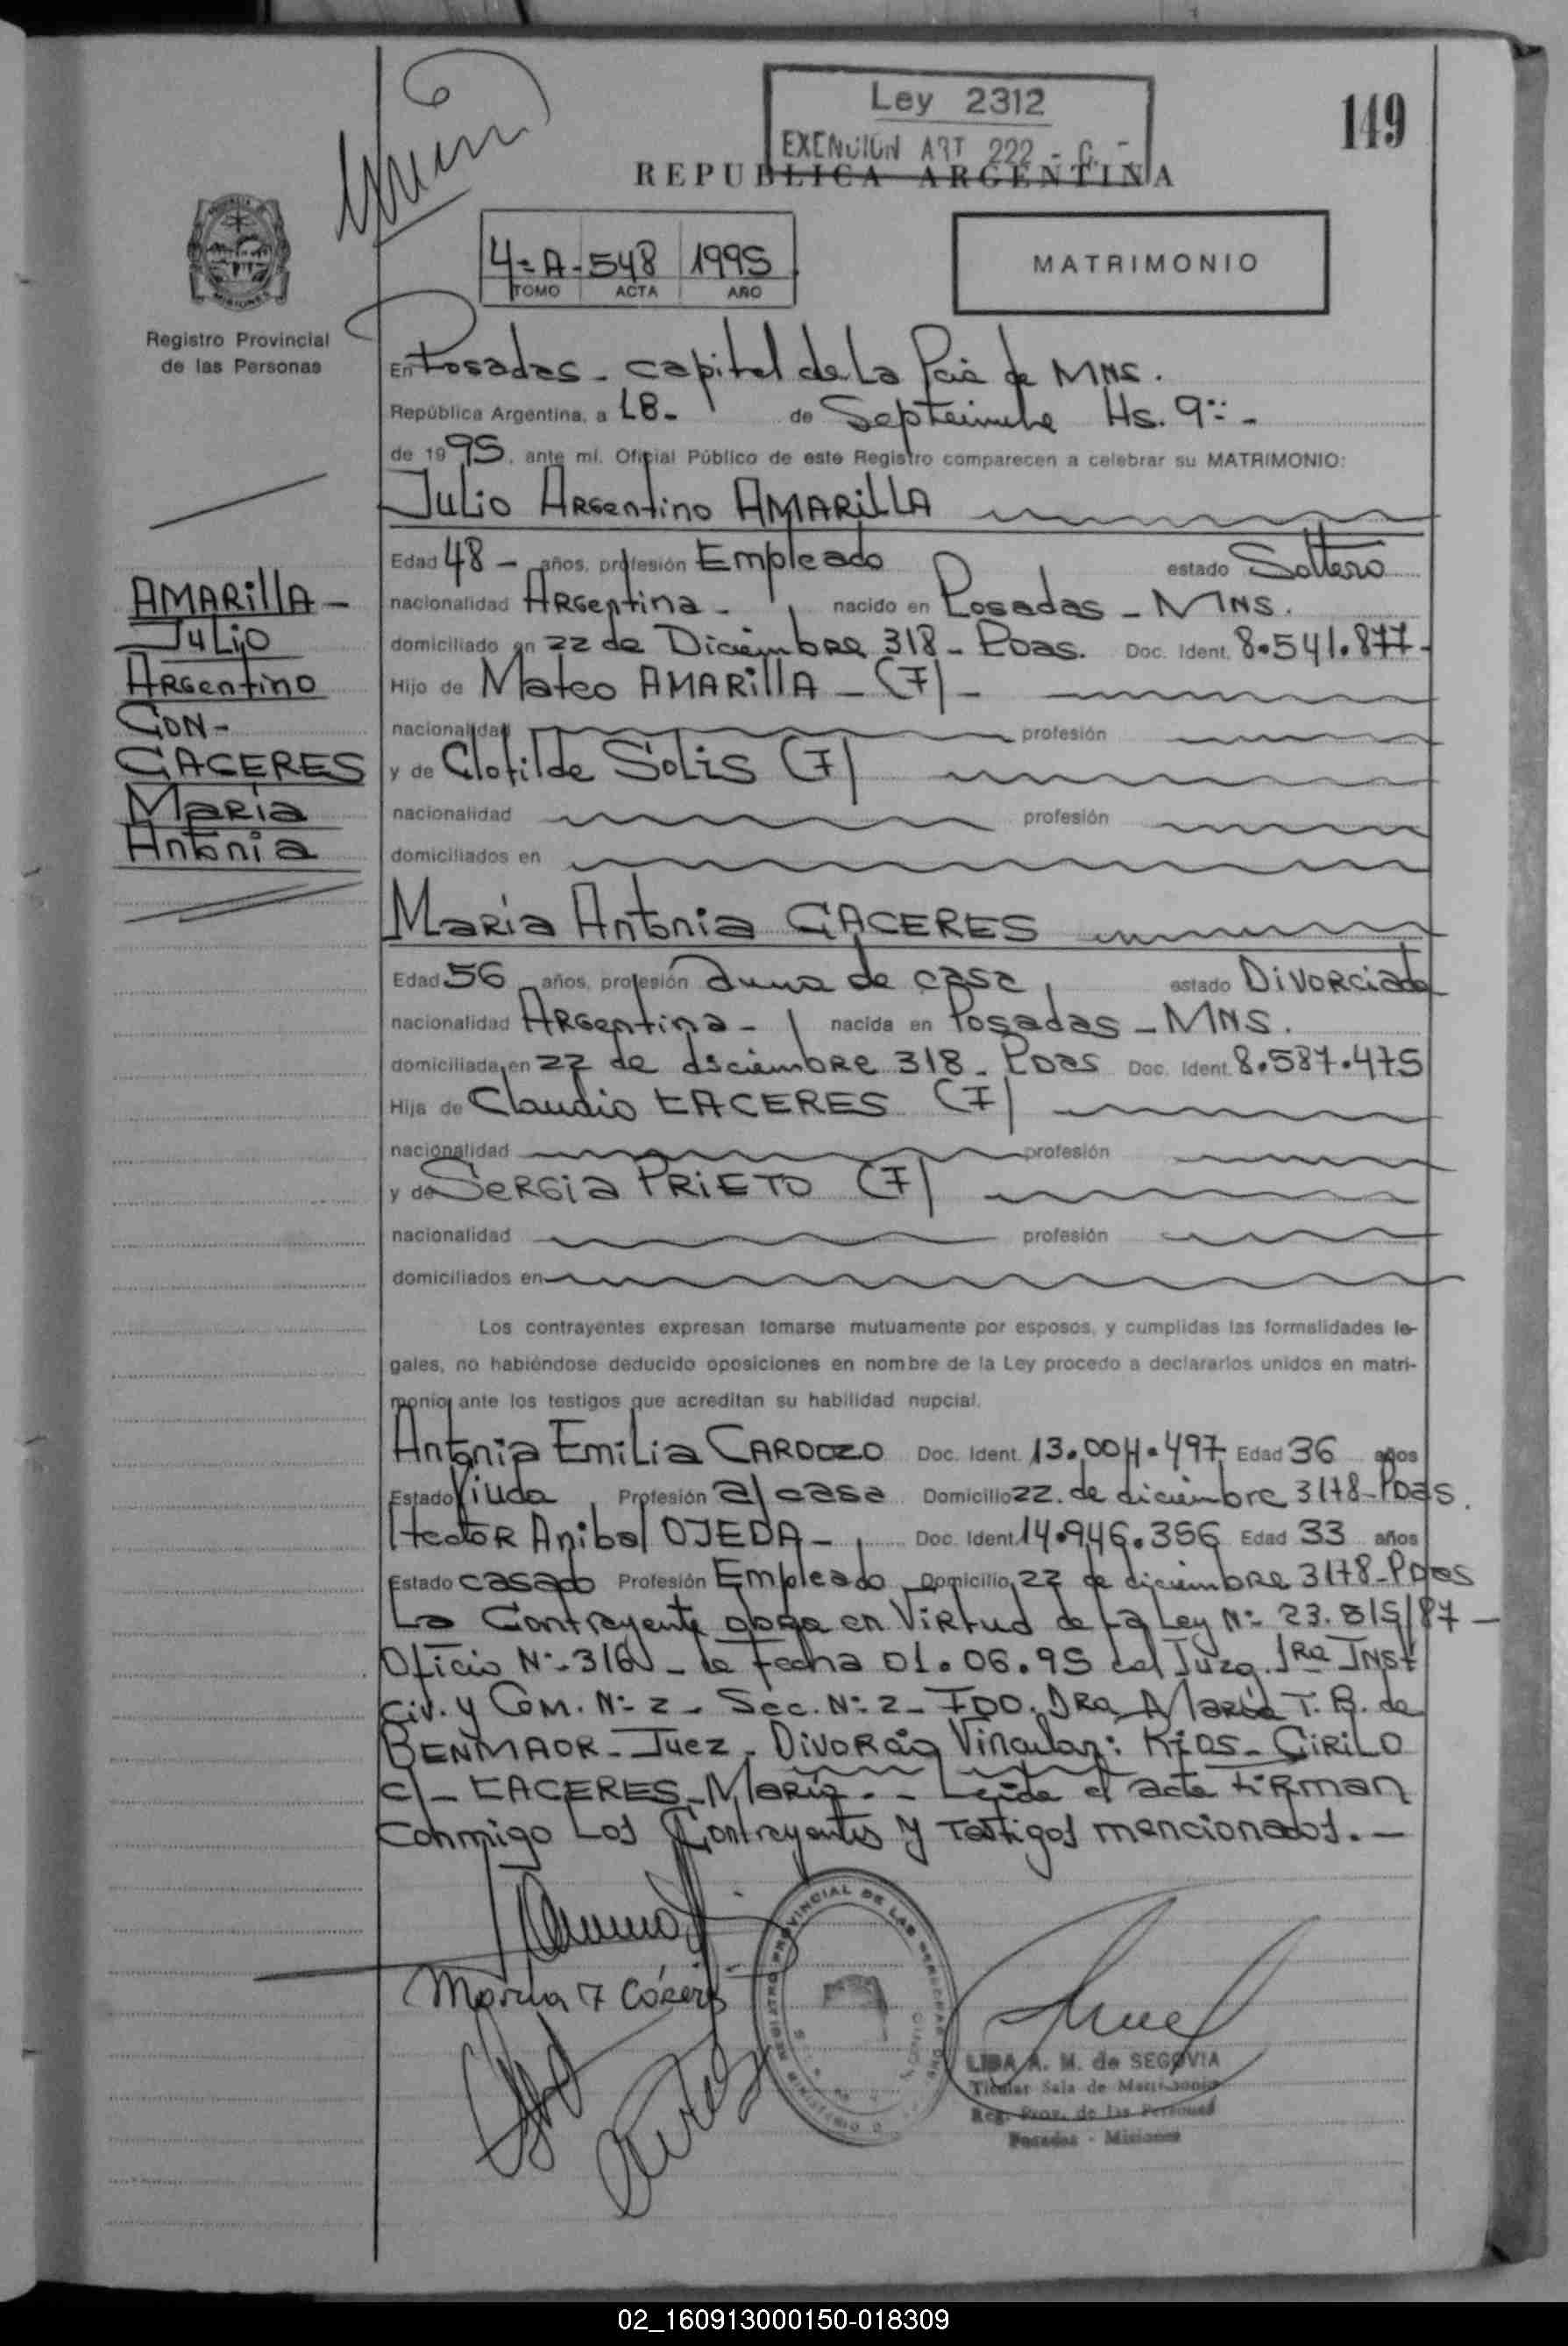 Ley 2312
EXENCIÓN ART 222 - C. -
149
REPUBLICA ARGENTINA
4º A - 548 1995
TOMO ACTA AÑO
MATRIMONIO
Registro Provincial
de las Personas
En Posadas - capital de La Pcia de MNS.
República Argentina, a 18 - de Septiembre Hs. 9:: -
de 1995, ante mí, Oficial Público de este Registro comparecen a celebrar su MATRIMONIO:
Julio Argentino AMARILLA
Edad 48 - años, profesión Empleado estado Soltero
nacionalidad Argentina - nacido en Posadas - MNS.
domiciliado en 22 de Diciembre 318 - Pdas. Doc. Ident. 8.541.877 -
Hijo de Mateo AMARILLA - (F) -
nacionalidad profesión
y de Clotilde Solis (F)
nacionalidad profesión
domiciliados en
AMARILLA -
Julio
Argentino
CON -
CACERES
María
Antonia
María Antonia CACERES
Edad 56 años, profesión ama de casa estado Divorciada
nacionalidad Argentina - nacida en Posadas - MNS.
domiciliada en 22 de diciembre 318 - Pdas Doc. Ident. 8.587.475
Hija de Claudio CACERES (F)
nacionalidad profesión
y de Sergia PRIETO (F)
nacionalidad profesión
domiciliados en
Los contrayentes expresan tomarse mutuamente por esposos, y cumplidas las formalidades le-
gales, no habiéndose deducido oposiciones en nombre de la Ley procedo a declararlos unidos en matri-
monio, ante los testigos que acreditan su habilidad nupcial.
Antonia Emilia CARDOZO Doc. Ident. 13.004.497 Edad 36 años
Estado Viuda Profesión a/casa Domicilio 22. de diciembre 3178 - Pdas.
Hector Anibal OJEDA - Doc. Ident. 14.946.356 Edad 33 años
Estado casado Profesión Empleado Domicilio 22 de diciembre 3178 - Pdas
La Contrayente obra en Virtud de La Ley Nº 23.515/87 -
Oficio Nº 316 - de Fecha 01.06.95 del Juzg. 1ra Inst
Civ. y Com. Nº 2 - Sec. Nº 2 - FDO. Dra María T. B. de
BENMAOR - Juez - Divorcio Vincular: Rios - CIRILO
c/ - CACERES - María. - Leída el acta firman
conmigo Los Contrayentes y Testigos mencionados. -
María A Cáceres
REGISTRO PROVINCIAL DE LAS PERSONAS
LIBA A. M. de SEGOVIA
Titular Sala de Matrimonio
Reg. Prov. de las Personas
Posadas - Misiones
02_160913000150-018309